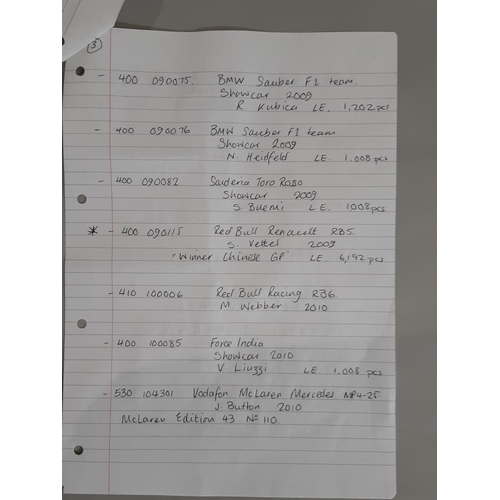 3
- 400 090075. BMW Sauber F1 team.
Showcar 2009
R Kubica LE. 1,202 pcs
- 400 090076 BMW Sauber F1 team
Showcar 2009
N. Heidfeld LE 1.008 pcs
- 400 090082 Suderia Toro Rosso
Showcar 2009
S Buemi LE. 1008 pcs
* - 400 090115 Red Bull Renault RB5.
S. Vettel 2009
"Winner Chinese GP" LE 6,192 pcs
- 410 100006 Red Bull Racing RB6.
M Webber 2010
- 400 100085 Force India
Showcar 2010
V Liuzzi LE. 1.008 pcs
- 530 104301 Vodafon McLaren Mercedes MP4-25
J. Button 2010
McLaren Edition 43 No 110